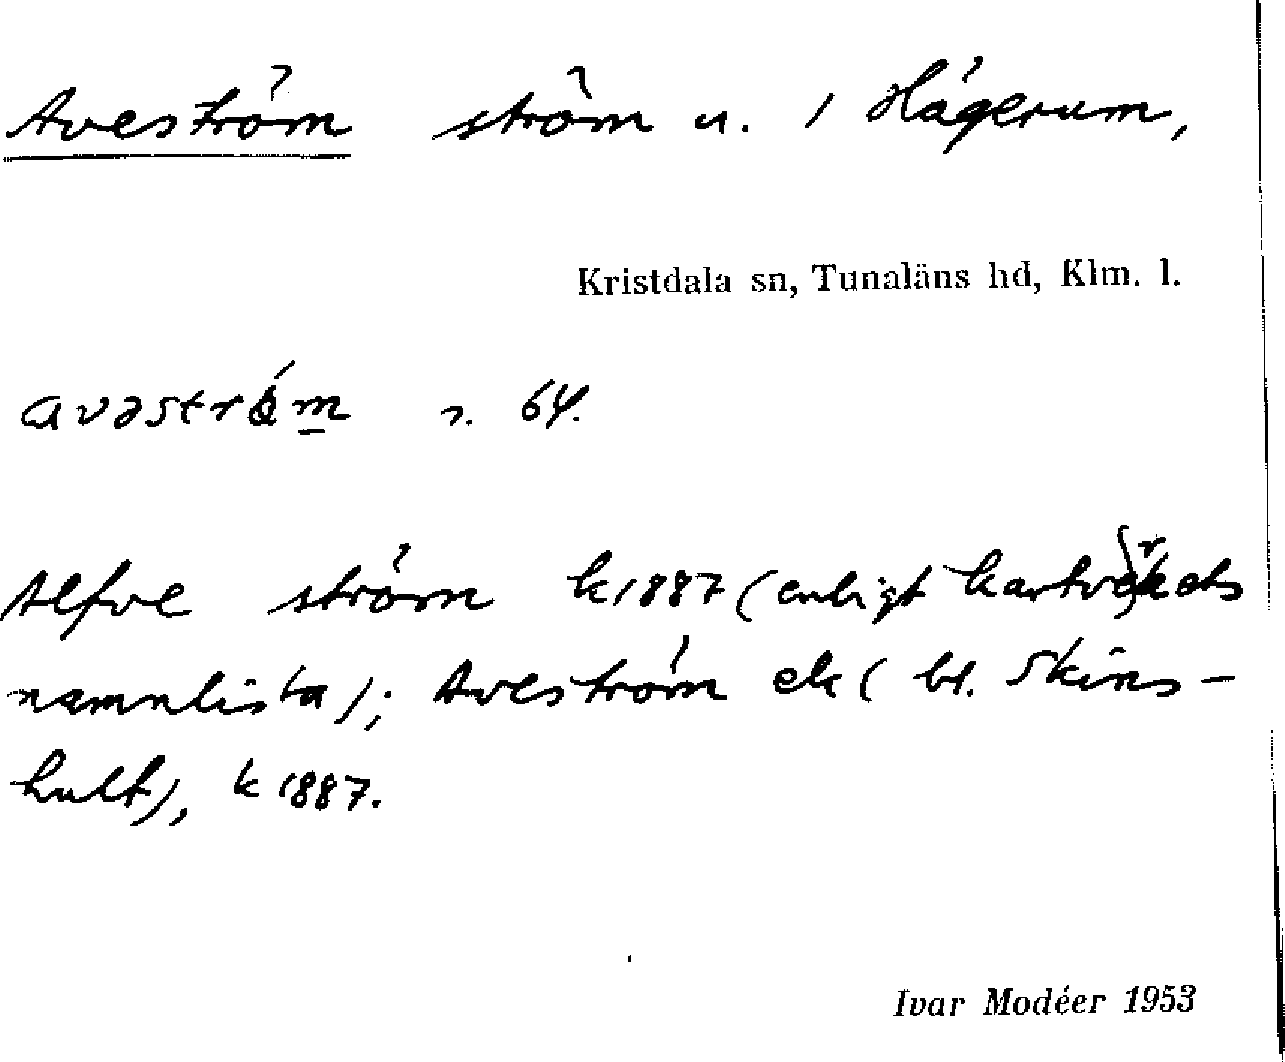 Aveström ström u. / Hägerum,
Kristdala sn, Tunaläns hd, Klm. l.
avəström n. 64.
Alfve ström k 1887 (enligt kartverkets
namnlista); Aveström ek (bl. Skins-
hult), k 1887.
Ivar Modéer 1953